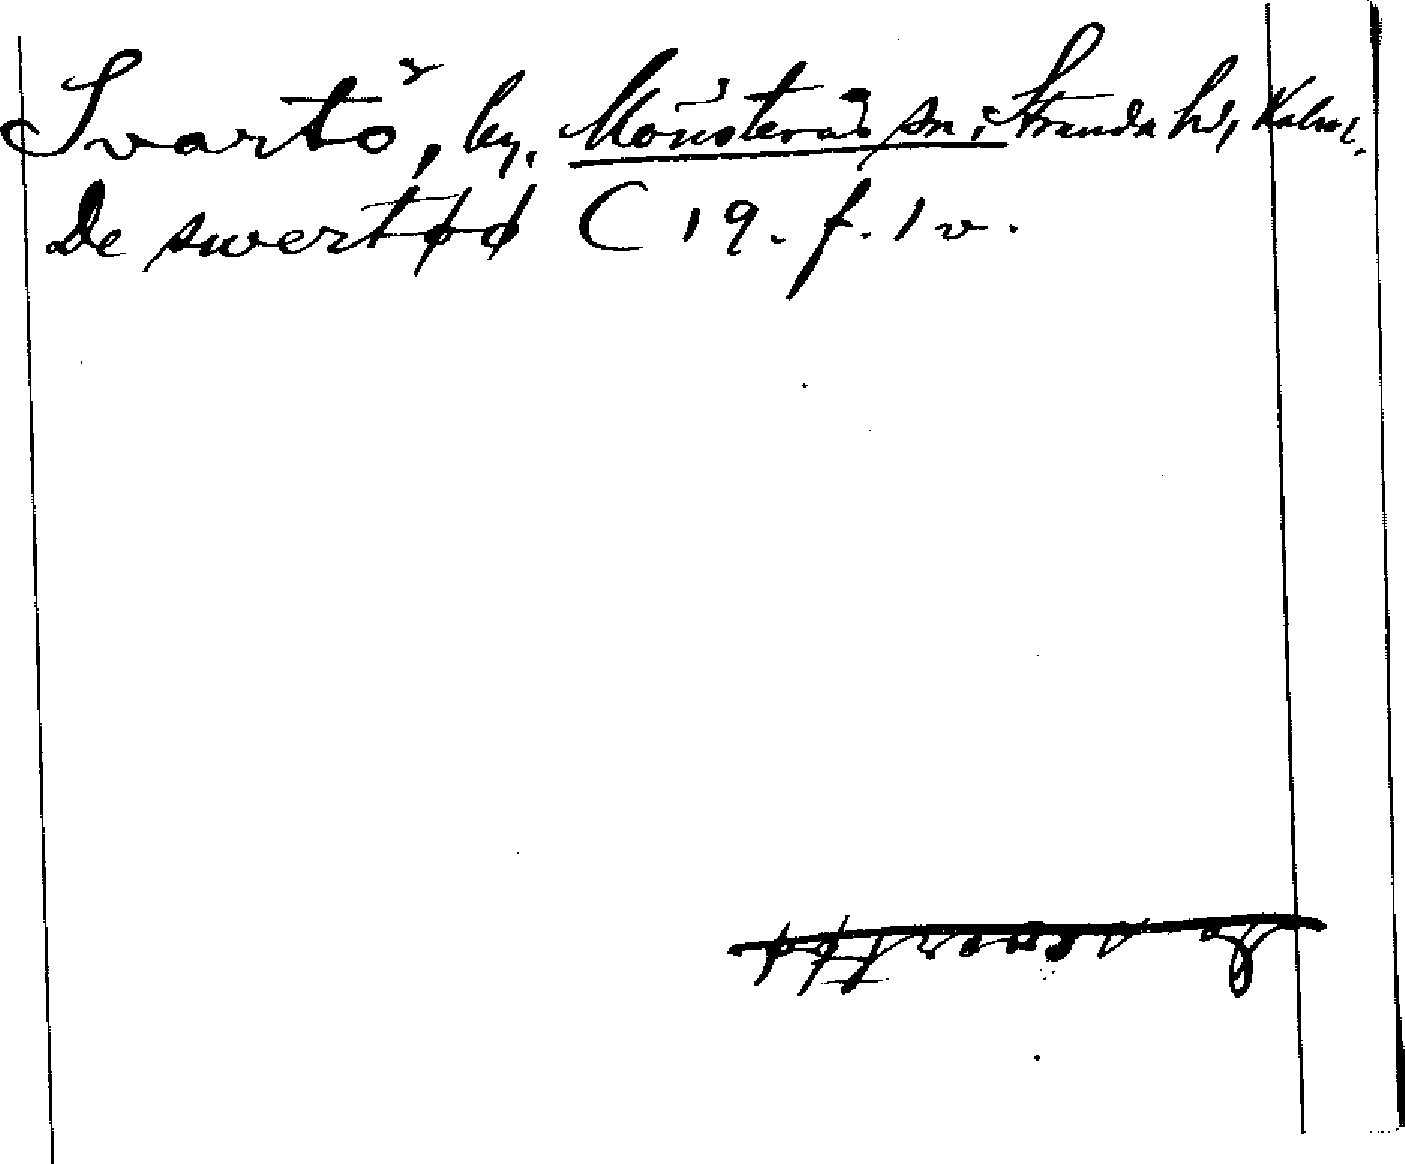 Svartö, by. Mönsterås sn, Stranda hd, Kalm.
De swertøø C 19. f. 1 v.